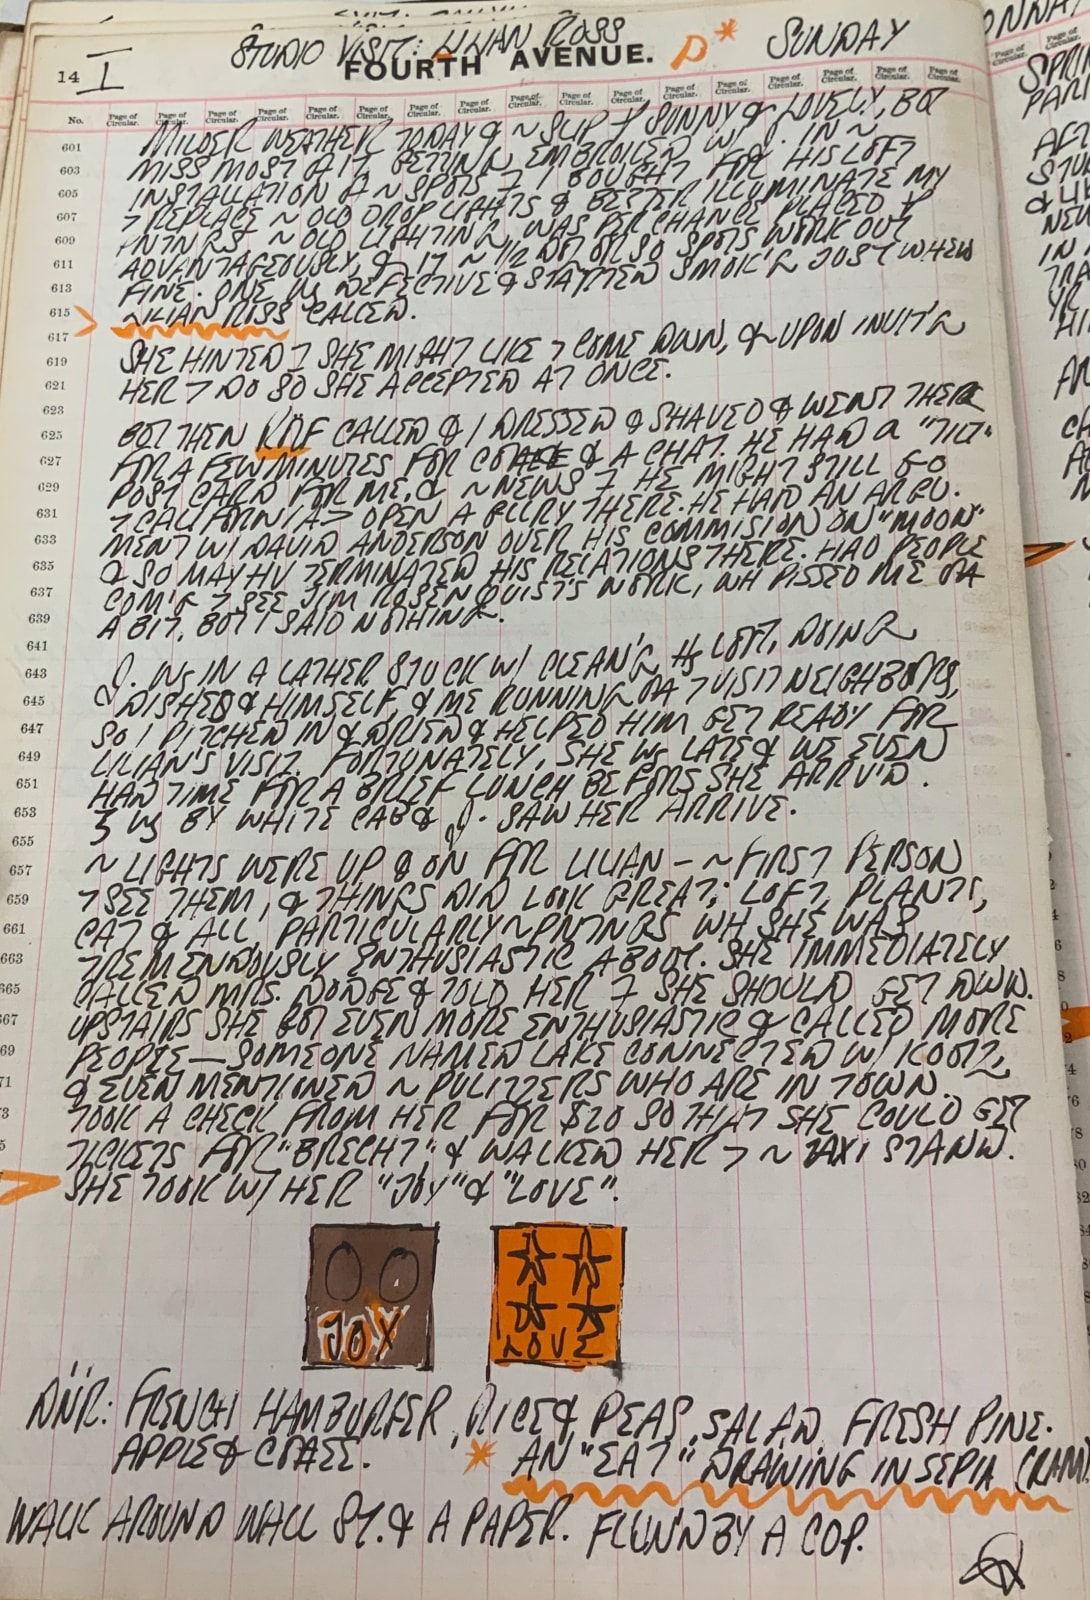 STUDIO VISIT: LILIAN ROSS
14 I FOURTH AVENUE. P* SUNDAY
No. Page of Circular. Page of Circular. Page of Circular. Page of Circular. Page of Circular. Page of Circular. Page of Circular. Page of Circular. Page of Circular. Page of Circular. Page of Circular. Page of Circular. Page of Circular. Page of Circular. Page of Circular. Page of Circular. Page of Circular.
601 MILDER WEATHER TODAY & ~ SLIP SUNNY & LOVELY, BUT
603 MISS MOST OF IT, GETTING EMBROILED W/ J. IN ~
605 INSTALLATION OF ~ SPOTS I BOUGHT FOR HIS LOFT
607 REPLACE ~ OLD DROPLIGHTS & BETTER ILLUMINATE MY
609 PNTNRS. ~ OLD LIGHTING, WAS PERCHANCE PLACED
611 ADVANTAGEOUSLY, & ~ 1/2 DOZ OR SO SPOTS WORK OUT
613 FINE. ONE WS DEFECTIVE & STARTED SMOK'G JUST WHEN
615 LILIAN ROSS CALLED.
617
619 SHE HINTED SHE MIGHT LIKE COME DOWN, & UPON INVIT'G
621 HER DO SO SHE ACCEPTED AT ONCE.
623
625 BUT THEN RDF CALLED & I DRESSED & SHAVED & WENT THERE
627 FOR A FEW MINUTES FOR COFFEE & A CHAT. HE HAD A "TILT"
629 POST CARD FOR ME, & ~ NEWS HE MIGHT STILL GO
631 CALIFORNIA OPEN A GLLRY THERE. HE HAD AN ARGU-
633 MENT W/ DAVID ANDERSON OVER HIS COMMISION ON "MOON"
635 & SO MAY HV TERMINATED HIS RELATIONS THERE. HAD PEOPLE
637 COM'G SEE JIM ROSENQUIST'S WORK, WH PISSED ME OFF
639 A BIT, BUT I SAID NOTHING.
641
643 J. WS IN A LATHER STUCK W/ CLEAN'G HS LOFT, DOING
645 DISHES & HIMSELF, & ME RUNNING OFF VISIT NEIGHBORS,
647 SO I PITCHED IN & DRIED & HELPED HIM GET READY FOR
649 LILIAN'S VISIT. FORTUNATELY, SHE WS LATE & WE EVEN
651 HAD TIME FOR A BRIEF LUNCH BEFORE SHE ARRV'D.
653 WS BY WHITE CAB & J. SAW HER ARRIVE.
655
657 ~ LIGHTS WERE UP & ON FOR LILIAN — ~ FIRST PERSON
659 SEE THEM, & THINGS DID LOOK GREAT; LOFT, PLANTS,
661 CAT & ALL, PARTICULARLY ~ PNTNGS WH SHE WAS
663 TREMENDOUSLY ENTHUSIASTIC ABOUT. SHE IMMEDIATELY
665 CALLED MRS. DODGE & TOLD HER SHE SHOULD GET DWN.
667 UPSTAIRS SHE GOT EVEN MORE ENTHUSIASTIC & CALLED MORE
669 PEOPLE — SOMEONE NAMED LAKE CONNECTED W/ KOOTZ,
671 & EVEN MENTIONED ~ PULITZERS WHO ARE IN TOWN.
673 TOOK A CHECK FROM HER FOR $20 SO THAT SHE COULD GET
TICKETS FOR "BRECHT" & WALKED HER ~ TAXI STAND.
SHE TOOK W/ HER "JOY" & "LOVE".
JOY LOVE
DNR: FRENCH HAMBURGER, RICE & PEAS, SALAD. FRESH PINE-
APPLE & COFFEE. * AN "EAT" DRAWING IN SEPIA
WALK AROUND WALL ST. & A PAPER. BY A COP.